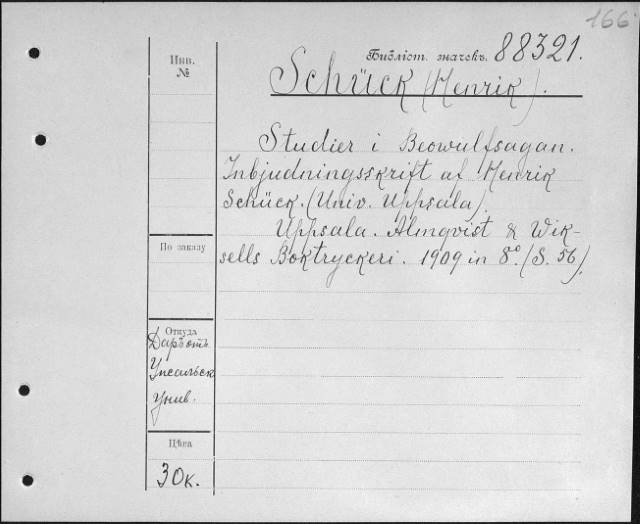 166
Инв.
№
Библіот. значекъ. 88321.
Schück (Henrik).
Studier i Beowulfsagan.
Inbjudningsskrift af Henrik
Schück. (Univ. Uppsala).
Uppsala. Almqvist & Wik-
sells Boktryckeri. 1909 in 8°. (S. 56).
По заказу
Откуда
Даръ отъ
Упсальск
Унив.
Цѣна
30к.